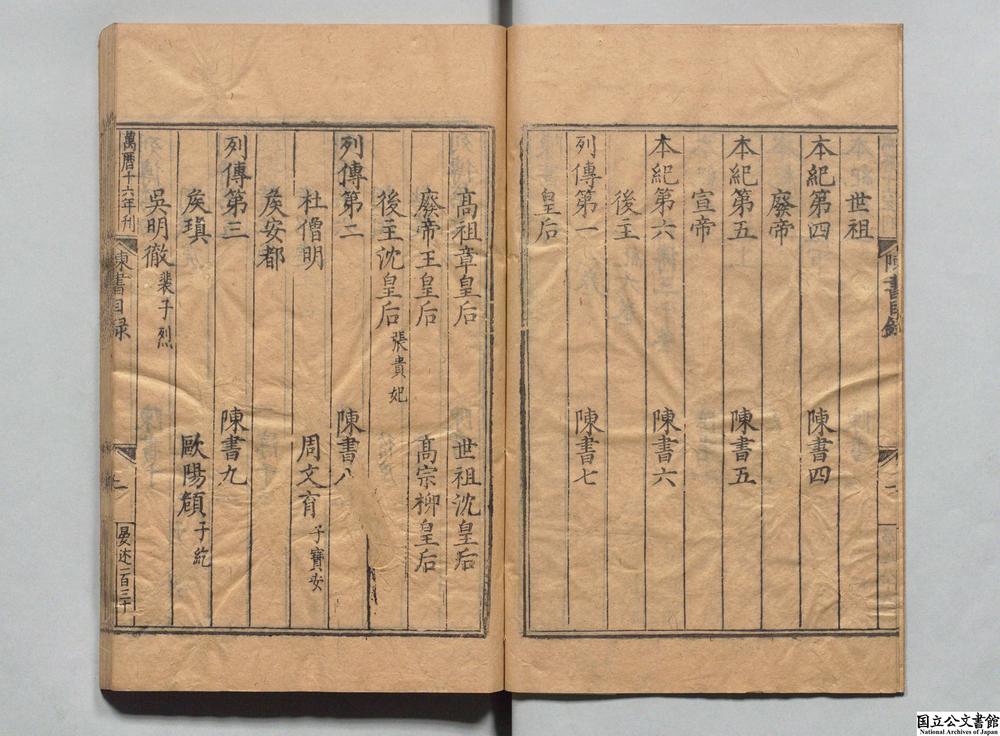 世祖
本紀第四 陳書四
廢帝
本紀第五 陳書五
宣帝
本紀第六 陳書六
後主
列傳第一 陳書七
皇后
陳書目錄
高祖章皇后 世祖沈皇后
廢帝王皇后 高宗柳皇后
後主沈皇后 張貴妃
列傳第二 陳書八
杜僧明 周文育 子寶安
矦安都
列傳第三 陳書九
矦瑱 歐陽頠 子紇
吳明徹 裴子烈
萬曆十六年刊
陳書目录
國立公文書館
National Archives of Japan